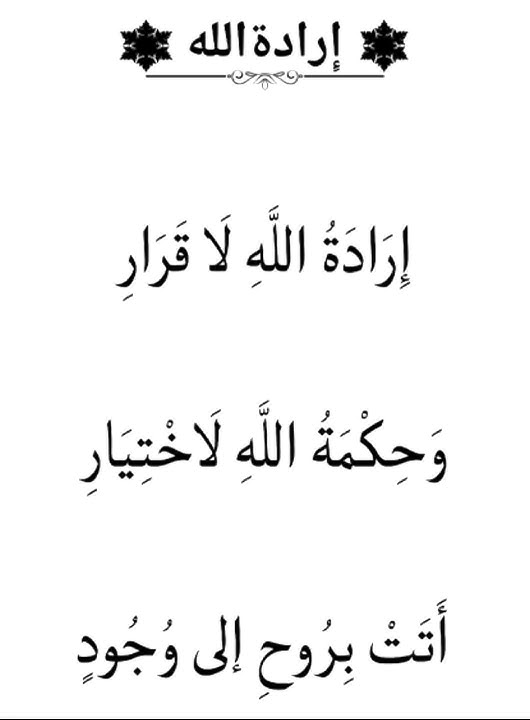 إرادة الله
إِرَادَةُ اللَّهِ لَا قَرَارِ
وَحِكْمَةُ اللَّهِ لَاخْتِيَارِ
أَتَتْ بِرُوحِ إلى وُجُودٍ